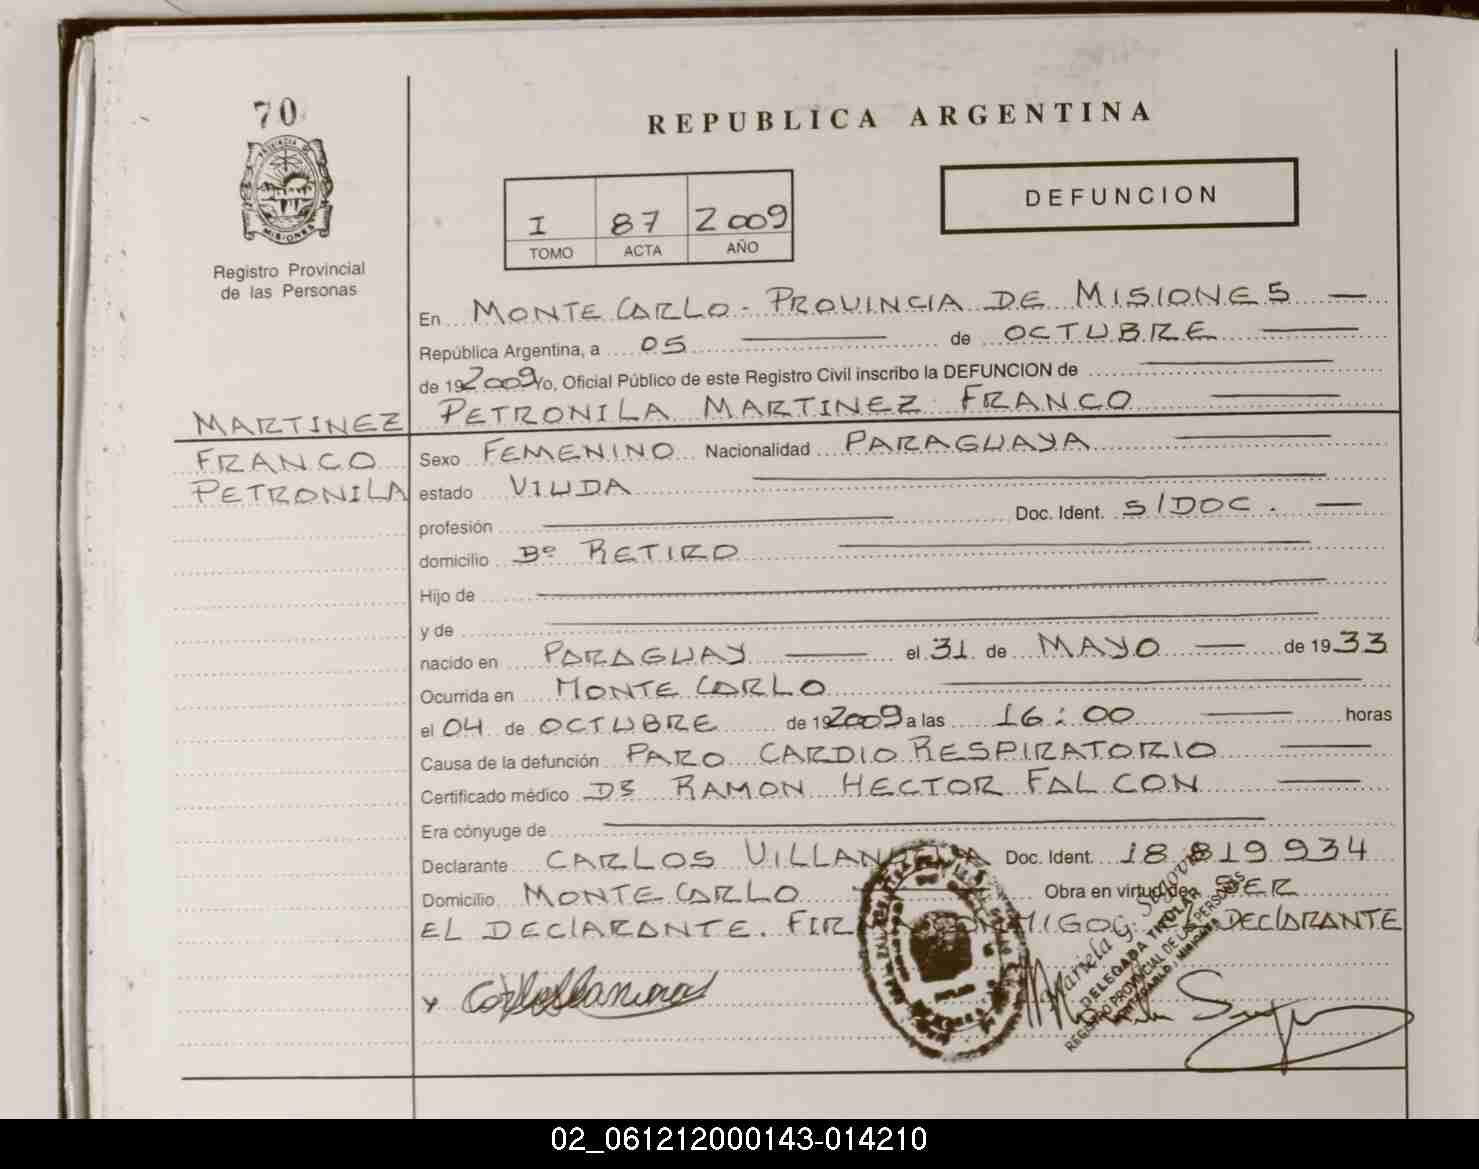 70
REPUBLICA ARGENTINA
PROVINCIA DE
MISIONES
Registro Provincial
de las Personas
I 87 2009
TOMO ACTA AÑO
DEFUNCION
En MONTE CARLO - PROVINCIA DE MISIONES
República Argentina, a 05 de OCTUBRE
de 19 2009 Yo, Oficial Público de este Registro Civil inscribo la DEFUNCION de
PETRONILA MARTINEZ FRANCO
MARTINEZ
FRANCO
PETRONILA
Sexo FEMENINO Nacionalidad PARAGUAYA
estado VIUDA
profesión Doc. Ident. S/DOC.
domicilio Bº RETIRO
Hijo de
y de
nacido en PARAGUAY el 31 de MAYO de 1933
Ocurrida en MONTE CARLO
el 04 de OCTUBRE de 19 2009 a las 16:00 horas
Causa de la defunción PARO CARDIO RESPIRATORIO
Certificado médico DR RAMON HECTOR FALCON
Era cónyuge de
Declarante CARLOS Doc. Ident. 18.819.934
Domicilio MONTE CARLO Obra en virtud de SER
EL DECLARANTE. DECLARANTE
Mariela G. Segovia
DELEGADA TITULAR
REGISTRO PROVINCIAL DE LAS PERSONAS
MONTECARLO - MISIONES
02_061212000143-014210